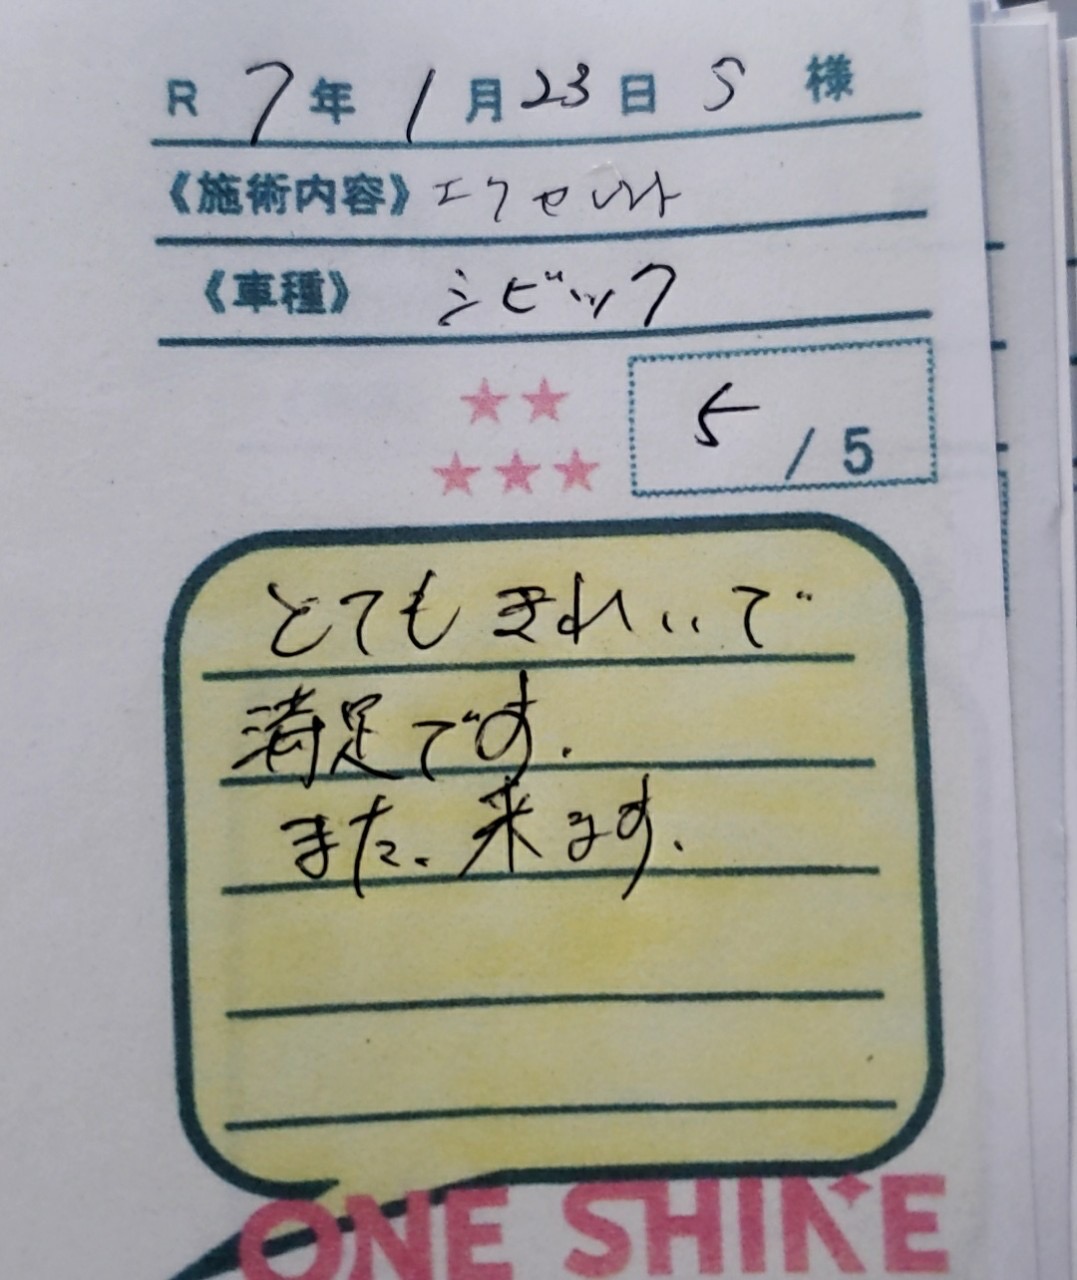 R 7年 1月23日 S 様
《施術内容》
《車種》 シビック
★★
5 / 5
★★★
とてもきれいで
満足です.
また、来ます.
ONE SHINE